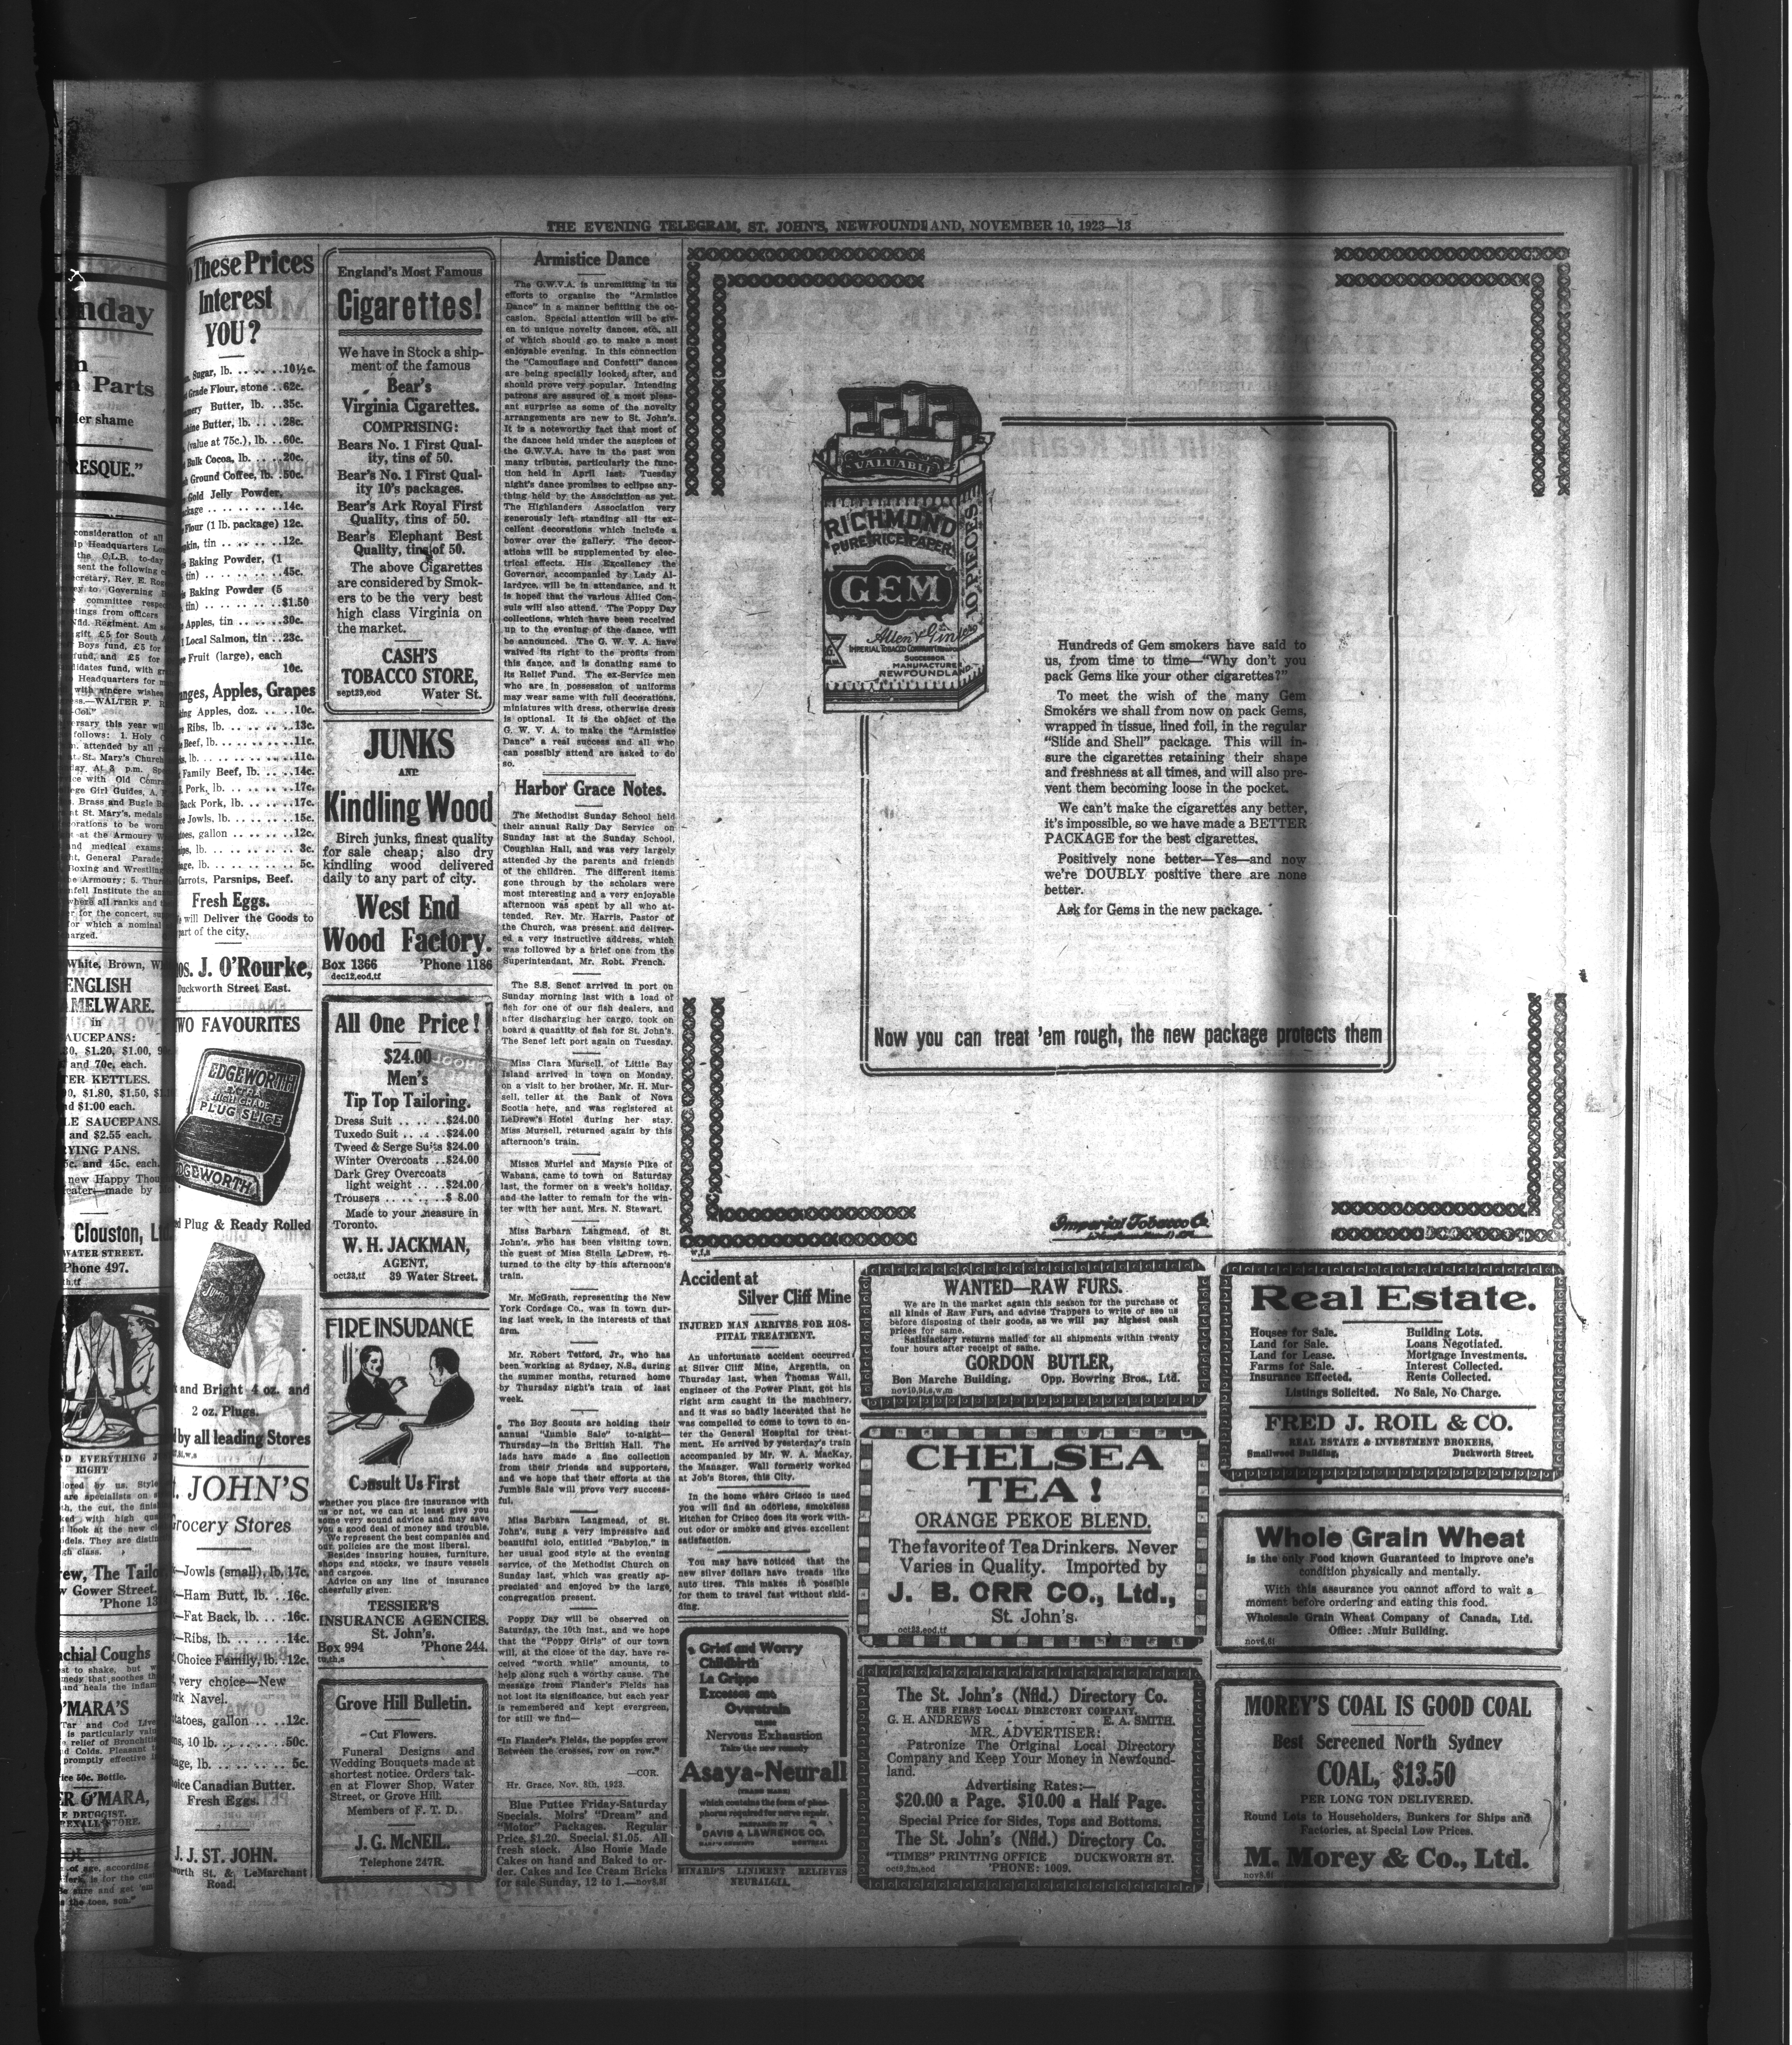 THE EVENING TELEGRAM, ST. JOHN'S, NEWFOUNDLAND, NOVEMBER 10, 1923—13
These Prices
Interest
YOU?
Sugar, lb. . . . . . .10½c.
Grade Flour, stone . .62c.
Butter, lb. . .35c.
Butter, lb. . . . .28c.
(value at 75c.), lb. . .60c.
Bulk Cocoa, lb. . . . .20c.
Ground Coffee, lb. .50c.
Gold Jelly Powder,
. . . . . . . . .14c.
Flour (1 lb. package) 12c.
tin . . . . . . .12c.
Baking Powder, (1
tin) . . . . . . . . .45c.
Baking Powder (5
tin) . . . . . . . . .$1.50
Apples, tin . . . . .30c.
Local Salmon, tin . .23c.
Fruit (large), each
10c.
Apples, Grapes
Apples, doz. . . . .10c.
Ribs, lb. . . . . . . .13c.
Beef, lb. . . . . . . .11c.
lb. . . . . . . . . .11c.
Family Beef, lb. . .14c.
Pork, lb. . . . . . .17c.
Back Pork, lb. . . . .17c.
Jowls, lb. . . . . . .15c.
gallon . . . . . . .12c.
lb. . . . . . . . . 3c.
lb. . . . . . . . . 5c.
Carrots, Parsnips, Beef.
Fresh Eggs.
will Deliver the Goods to
part of the city.
J. O'Rourke,
Duckworth Street East.
TWO FAVOURITES
EDGEWORTH
EXTRA
HIGH GRADE
PLUG SLICE
EDGEWORTH
Plug & Ready Rolled
and Bright 4 oz. and
2 oz. Plugs.
by all leading Stores
JOHN'S
Grocery Stores
Jowls (small), lb. 17c.
Ham Butt, lb. . .16c.
Fat Back, lb. . . .16c.
Ribs, lb. . . . . . .14c.
Choice Family, lb. .12c.
very choice—New
Navel.
gallon . . . .12c.
10 lb. . . . . . . .50c.
lb. . . . . . . . 5c.
Choice Canadian Butter.
Fresh Eggs.
J. J. ST. JOHN.
St. & LeMarchant
Road.
England's Most Famous
Cigarettes!
We have in Stock a ship-
ment of the famous
Bear's
Virginia Cigarettes.
COMPRISING:
Bears No. 1 First Qual-
ity, tins of 50.
Bear's No. 1 First Qual-
ity 10's packages.
Bear's Ark Royal First
Quality, tins of 50.
Bear's Elephant Best
Quality, tins of 50.
The above Cigarettes
are considered by Smok-
ers to be the very best
high class Virginia on
the market.
CASH'S
TOBACCO STORE,
sept29,eod Water St.
JUNKS
AND
Kindling Wood
Birch junks, finest quality
for sale cheap; also dry
kindling wood delivered
daily to any part of city.
West End
Wood Factory.
Box 1366 'Phone 1186
dec12,eod,tf
All One Price!
$24.00
Men's
Tip Top Tailoring.
Dress Suit . . . . . .$24.00
Tuxedo Suit . . . . .$24.00
Tweed & Serge Suits $24.00
Winter Overcoats . .$24.00
Dark Grey Overcoats
light weight . . . .$24.00
Trousers . . . . . . .$ 8.00
Made to your measure in
Toronto.
W. H. JACKMAN,
AGENT,
oct23,tf 39 Water Street.
FIRE INSURANCE
Consult Us First
whether you place fire insurance with
us or not, we can at least give you
some very sound advice and may save
you a good deal of money and trouble.
We represent the best companies and
our policies are the most liberal.
Besides insuring houses, furniture,
shops and stocks, we insure vessels
and cargoes.
Advice on any line of insurance
cheerfully given.
TESSIER'S
INSURANCE AGENCIES.
St. John's.
Box 994 'Phone 244.
tu,th,s
Grove Hill Bulletin.
Cut Flowers.
Funeral Designs and
Wedding Bouquets made at
shortest notice. Orders tak-
en at Flower Shop, Water
Street, or Grove Hill.
Members of F. T. D.
J. G. McNEIL.
Telephone 247R.
Armistice Dance
The G.W.V.A. is unremitting in its
efforts to organize the "Armistice
Dance" in a manner befitting the oc-
casion. Special attention will be giv-
en to unique novelty dances, etc., all
of which should go to make a most
enjoyable evening. In this connection
the "Camouflage and Confetti" dances
are being specially looked after, and
should prove very popular. Intending
patrons are assured of a most pleas-
ant surprise as some of the novelty
arrangements are new to St. John's.
It is a noteworthy fact that most of
the dances held under the auspices of
the G.W.V.A. have in the past won
many tributes, particularly the func-
tion held in April last. Tuesday
night's dance promises to eclipse any-
thing held by the Association as yet.
The Highlanders Association very
generously left standing all its ex-
cellent decorations which include a
bower over the gallery. The decor-
ations will be supplemented by elec-
trical effects. His Excellency the
Governor, accompanied by Lady Al-
lardyce, will be in attendance, and it
is hoped that the various Allied Con-
suls will also attend. The Poppy Day
collections, which have been received
up to the evening of the dance, will
be announced. The G. W. V. A. have
waived its right to the profits from
this dance, and is donating same to
its Relief Fund. The ex-Service men
who are in possession of uniforms
may wear same with full decorations,
miniatures with dress, otherwise dress
is optional. It is the object of the
G. W. V. A. to make the "Armistice
Dance" a real success and all who
can possibly attend are asked to do
so.
Harbor Grace Notes.
The Methodist Sunday School held
their annual Rally Day Service on
Sunday last at the Sunday School,
Coughlan Hall, and was very largely
attended by the parents and friends
of the children. The different items
gone through by the scholars were
most interesting and a very enjoyable
afternoon was spent by all who at-
tended. Rev. Mr. Harris, Pastor of
the Church, was present and deliver-
ed a very instructive address, which
was followed by a brief one from the
Superintendant, Mr. Robt. French.
The S.S. Senef arrived in port on
Sunday morning last with a load of
fish for one of our fish dealers, and
after discharging her cargo, took on
board a quantity of fish for St. John's.
The Senef left port again on Tuesday.
Miss Clara Mursell, of Little Bay
Island arrived in town on Monday,
on a visit to her brother, Mr. H. Mur-
sell, teller at the Bank of Nova
Scotia here, and was registered at
LeDrew's Hotel during her stay.
Miss Mursell, returned again by this
afternoon's train.
Misses Muriel and Maysie Pike of
Wabana, came to town on Saturday
last, the former on a week's holiday,
and the latter to remain for the win-
ter with her aunt, Mrs. N. Stewart.
Miss Barbara Langmead, of St.
John's, who has been visiting town,
the guest of Miss Stella LeDrew, re-
turned to the city by this afternoon's
train.
Mr. McGrath, representing the New
York Cordage Co., was in town dur-
ing last week, in the interests of that
firm.
Mr. Robert Tetford, Jr., who has
been working at Sydney, N.S., during
the summer months, returned home
by Thursday night's train of last
week.
The Boy Scouts are holding their
annual "Jumble Sale" to-night—
Thursday—in the British Hall. The
lads have made a fine collection
from their friends and supporters,
and we hope that their efforts at the
Jumble Sale will prove very success-
ful.
Miss Barbara Langmead, of St.
John's, sung a very impressive and
beautiful solo, entitled "Babylon," in
her usual good style at the evening
service, of the Methodist Church on
Sunday last, which was greatly ap-
preciated and enjoyed by the large
congregation present.
Poppy Day will be observed on
Saturday, the 10th inst., and we hope
that the "Poppy Girls" of our town
will, at the close of the day, have re-
ceived "worth while" amounts, to
help along such a worthy cause. The
message from Flander's Fields has
not lost its significance, but each year
is remembered and kept evergreen,
for still we find—
"In Flander's Fields, the poppies grow
Between the crosses, row on row."
—COR.
Hr. Grace, Nov. 8th, 1923.
Blue Puttee Friday-Saturday
Specials. Moirs' "Dream" and
"Motor" Packages. Regular
Price, $1.20. Special, $1.05. All
fresh stock. Also Home Made
Cakes on hand and Baked to or-
der. Cakes and Ice Cream Bricks
for sale Sunday, 12 to 1.—nov9,2i
VALUABLE
RICHMOND
PURE RICE PAPER
GEM
10 PIECES
Allen & Ginter
IMPERIAL TOBACCO COMPANY
SUCCESSOR
MANUFACTURER
NEWFOUNDLAND
Hundreds of Gem smokers have said to
us, from time to time—"Why don't you
pack Gems like your other cigarettes?"
To meet the wish of the many Gem
Smokers we shall from now on pack Gems,
wrapped in tissue, lined foil, in the regular
"Slide and Shell" package. This will in-
sure the cigarettes retaining their shape
and freshness at all times, and will also pre-
vent them becoming loose in the pocket.
We can't make the cigarettes any better,
it's impossible, so we have made a BETTER
PACKAGE for the best cigarettes.
Positively none better—Yes—and now
we're DOUBLY positive there are none
better.
Ask for Gems in the new package.
Now you can treat 'em rough, the new package protects them
Imperial Tobacco Co.
w,f,s
Accident at
Silver Cliff Mine
INJURED MAN ARRIVES FOR HOS-
PITAL TREATMENT.
An unfortunate accident occurred
at Silver Cliff Mine, Argentia, on
Thursday last, when Thomas Wall,
engineer of the Power Plant, got his
right arm caught in the machinery,
and it was so badly lacerated that he
was compelled to come to town to en-
ter the General Hospital for treat-
ment. He arrived by yesterday's train
accompanied by Mr. W. A. MacKay,
the Manager. Wall formerly worked
at Job's Stores, this City.
In the home where Crisco is used
you will find an odorless, smokeless
kitchen for Crisco does its work with-
out odor or smoke and gives excellent
satisfaction.
You may have noticed that the
new silver dollars have treads like
auto tires. This makes it possible
for them to travel fast without skid-
ding.
Grief and Worry
Childbirth
La Grippe
Excesses and
Overstrain
cause
Nervous Exhaustion
Take the new remedy
Asaya-Neurall
(TRADE MARK)
which contains the form of phos-
phorus required for nerve repair.
PREPARED BY
DAVIS & LAWRENCE CO.
MONTREAL
MINARD'S LINIMENT RELIEVES
NEURALGIA.
WANTED—RAW FURS.
We are in the market again this season for the purchase of
all kinds of Raw Furs, and advise Trappers to write or see us
before disposing of their goods, as we will pay highest cash
prices for same.
Satisfactory returns mailed for all shipments within twenty
four hours after receipt of same.
GORDON BUTLER,
Bon Marche Building. Opp. Bowring Bros., Ltd.
nov10,9i,s,w,m
CHELSEA
TEA!
ORANGE PEKOE BLEND.
The favorite of Tea Drinkers. Never
Varies in Quality. Imported by
J. B. ORR CO., Ltd.,
St. John's.
oct23,eod,tf
The St. John's (Nfld.) Directory Co.
THE FIRST LOCAL DIRECTORY COMPANY.
G. H. ANDREWS - - - E. A. SMITH.
MR. ADVERTISER:
Patronize The Original Local Directory
Company and Keep Your Money in Newfound-
land.
Advertising Rates:—
$20.00 a Page. $10.00 a Half Page.
Special Price for Sides, Tops and Bottoms.
The St. John's (Nfld.) Directory Co.
"TIMES" PRINTING OFFICE DUCKWORTH ST.
oct9,2m,eod 'PHONE: 1009.
Real Estate.
Houses for Sale. Building Lots.
Land for Sale. Loans Negotiated.
Land for Lease. Mortgage Investments.
Farms for Sale. Interest Collected.
Insurance Effected. Rents Collected.
Listings Solicited. No Sale, No Charge.
FRED J. ROIL & CO.
REAL ESTATE & INVESTMENT BROKERS,
Smallwood Building, Duckworth Street.
Whole Grain Wheat
is the only Food known Guaranteed to improve one's
condition physically and mentally.
With this assurance you cannot afford to wait a
moment before ordering and eating this food.
Wholesale Grain Wheat Company of Canada, Ltd.
Office: Muir Building.
nov6,6i
MOREY'S COAL IS GOOD COAL
Best Screened North Sydney
COAL, $13.50
PER LONG TON DELIVERED.
Round Lots to Householders, Bunkers for Ships and
Factories, at Special Low Prices.
M. Morey & Co., Ltd.
nov8,6i